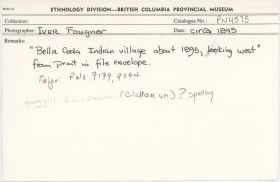 ETHNOLOGY DIVISION—BRITISH COLUMBIA PROVINCIAL MUSEUM
Collection
Catalogue No.: PN4575
Photographer: IVER Fougner
Date: circa 1895
Remarks:
"Bella Coola Indian village about 1895, looking west"
from print in file envelope.
Refer: PNs 7179, 9064
(Clallam un) ? Spelling